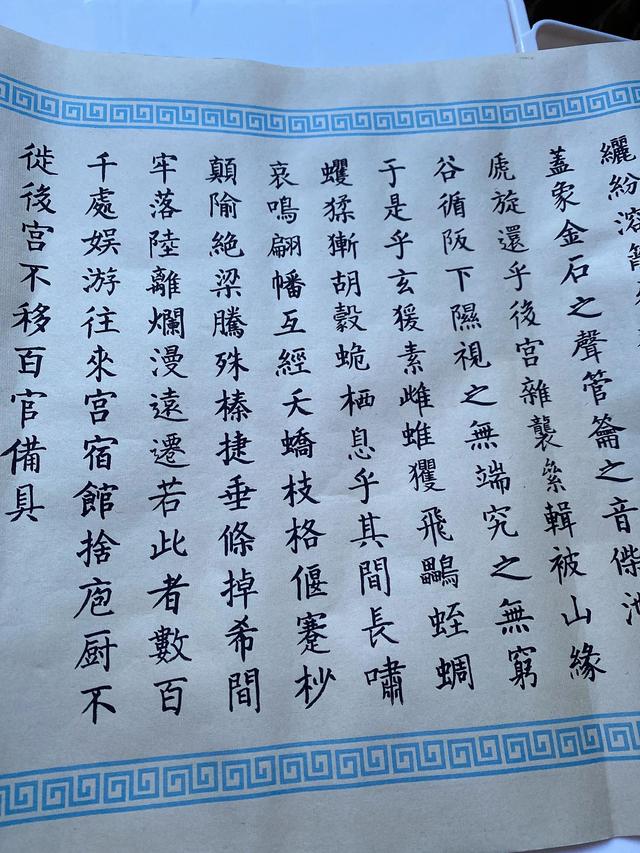 纚紛溶
蓋象金石之聲管籥之音偨池
虒旋還乎後宮雜襲絫輯被山緣
谷循阪下隰視之無端究之無窮
于是乎玄猨素雌蜼玃飛鸓蛭蜩
蠼猱獑胡豰蛫栖息乎其間長嘯
哀鳴翩幡互經夭蟜枝格偃蹇杪
顛隃絕梁騰殊榛捷垂條掉希間
牢落陸離爛漫遠遷若此者數百
千處娱游往來宮宿館捨庖厨不
徙後宮不移百官備具